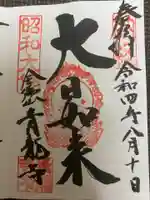 奉拝
令和四年八月十日
大日如来
昭和大
青龍寺